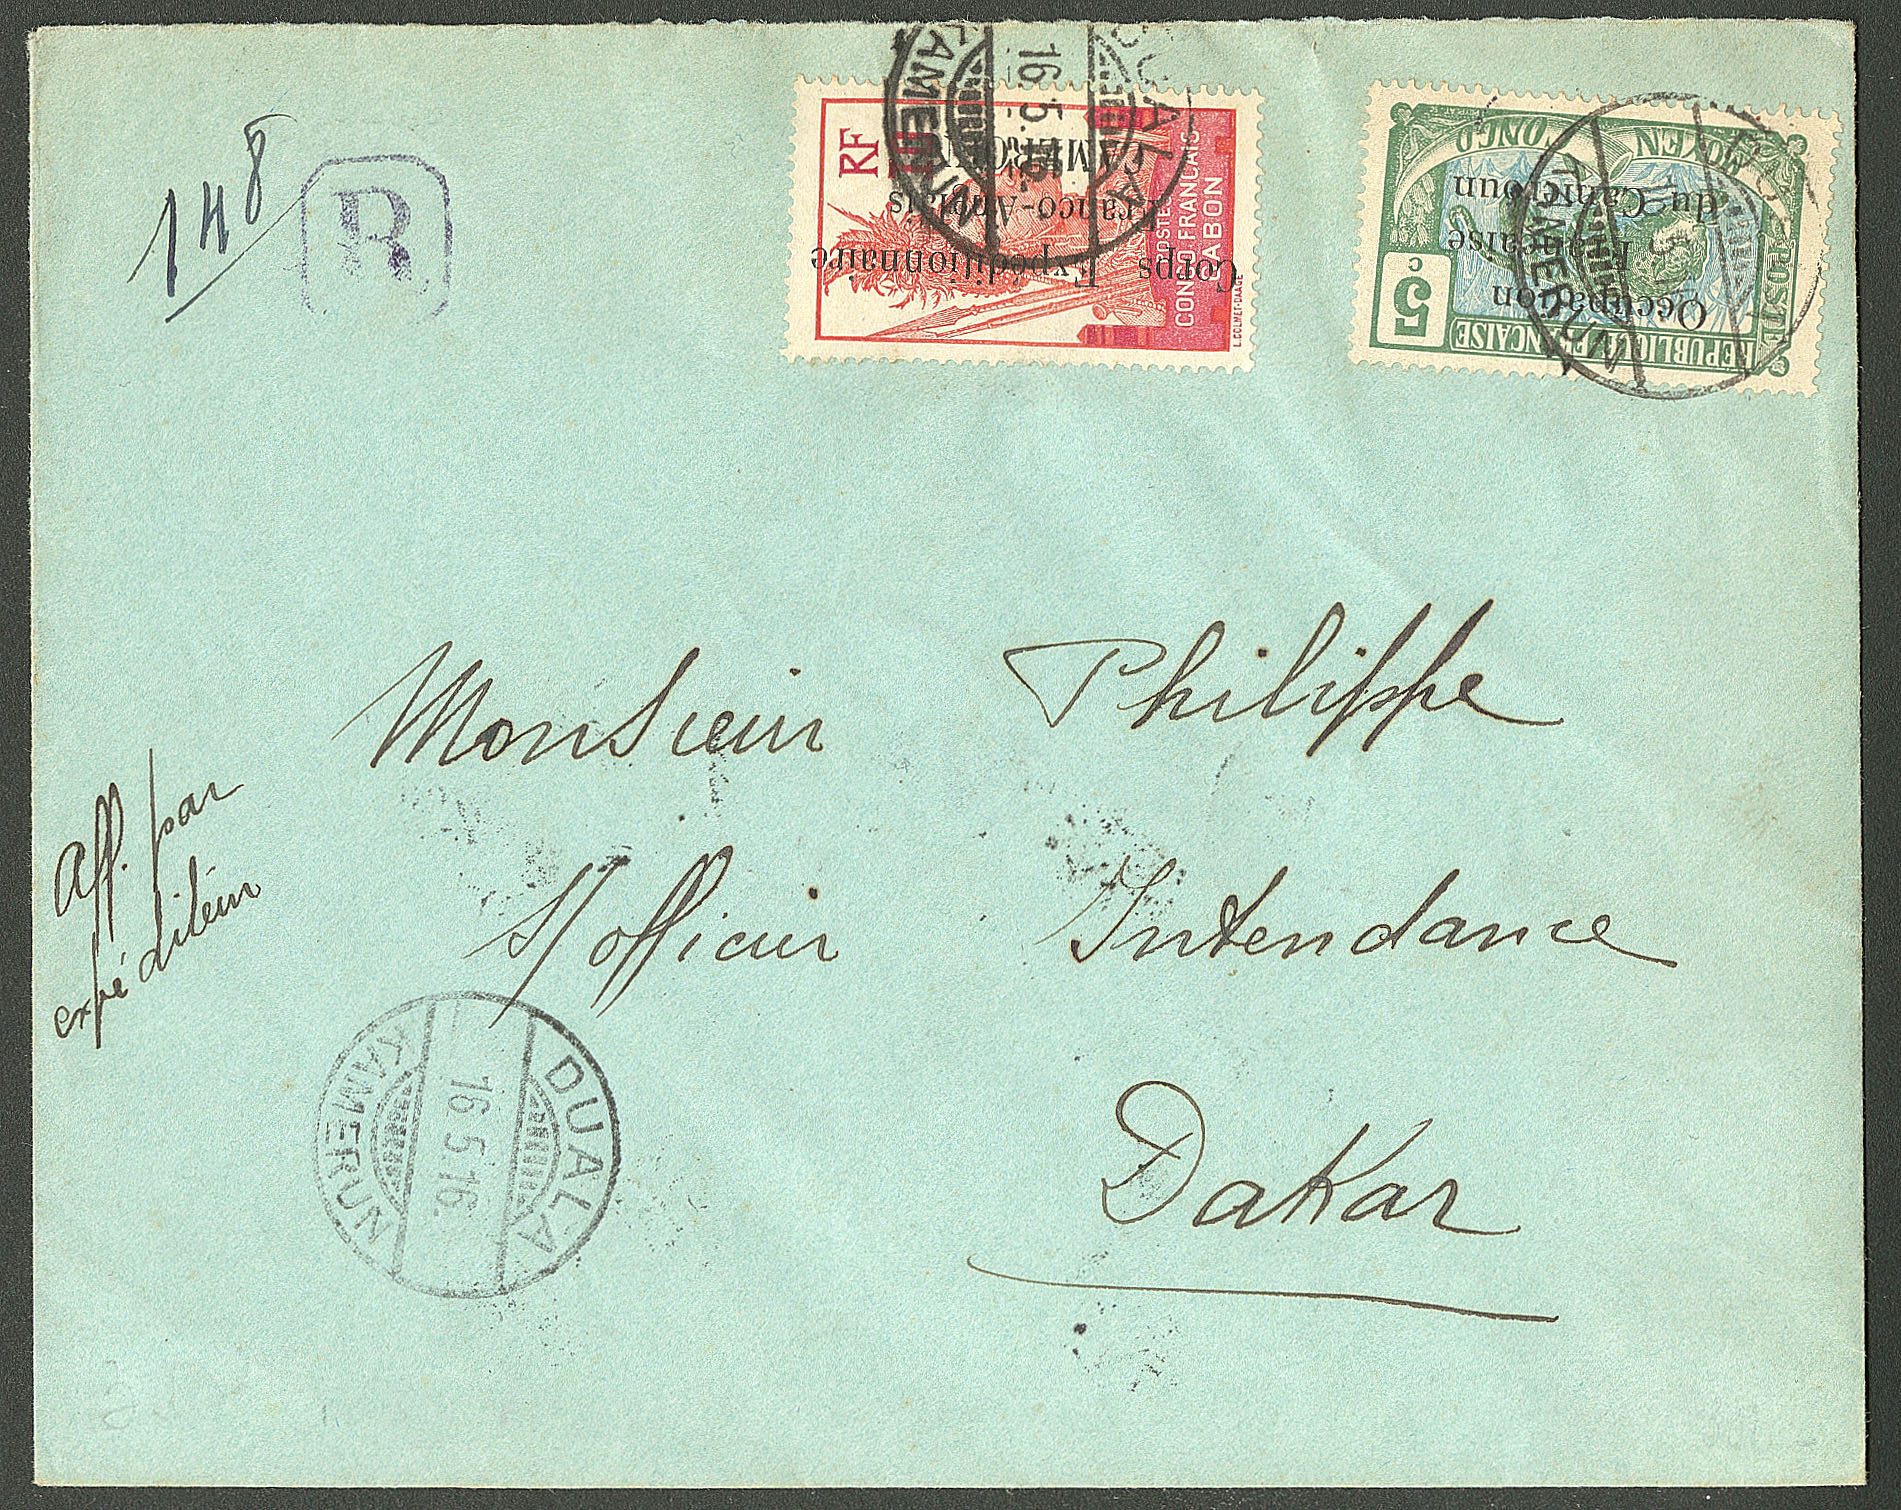 148
R
DUALA
16.5.16.
KAMERUN
RF
POSTES
CONGO FRANCAIS
GABON
L.COLMET-DAAGE
Corps Expéditionnaire
Franco-Anglais
CAMEROUN
MOYEN CONGO
POSTES
5 c
REPUBLIQUE FRANÇAISE
Occupation
Française
du Cameroun
KAMERUN
Monsieur Philippe
S/officier Intendance
Dakar
Aff. par
expéditeur
DUALA
16.5.16.
KAMERUN